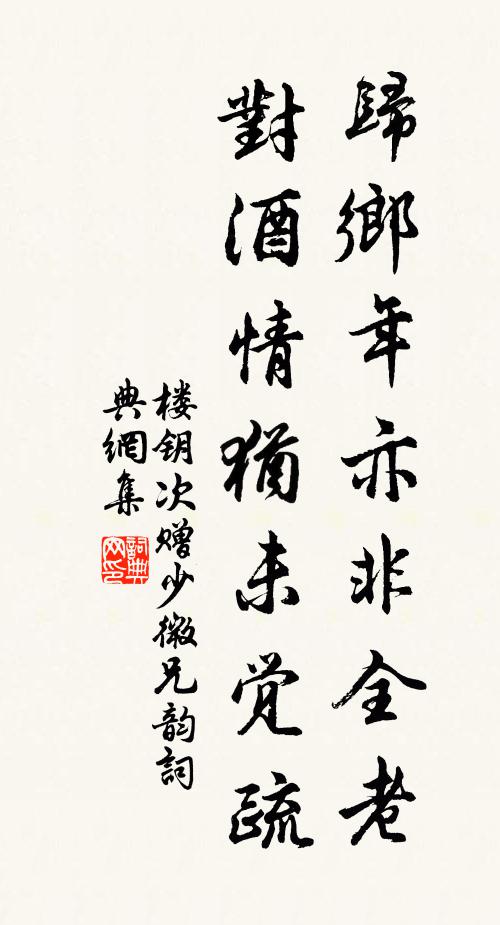 歸鄉年亦非全老
對酒情猶未覺疏
楼钥次赠少微兄韵詞
典網集
詞典
网印